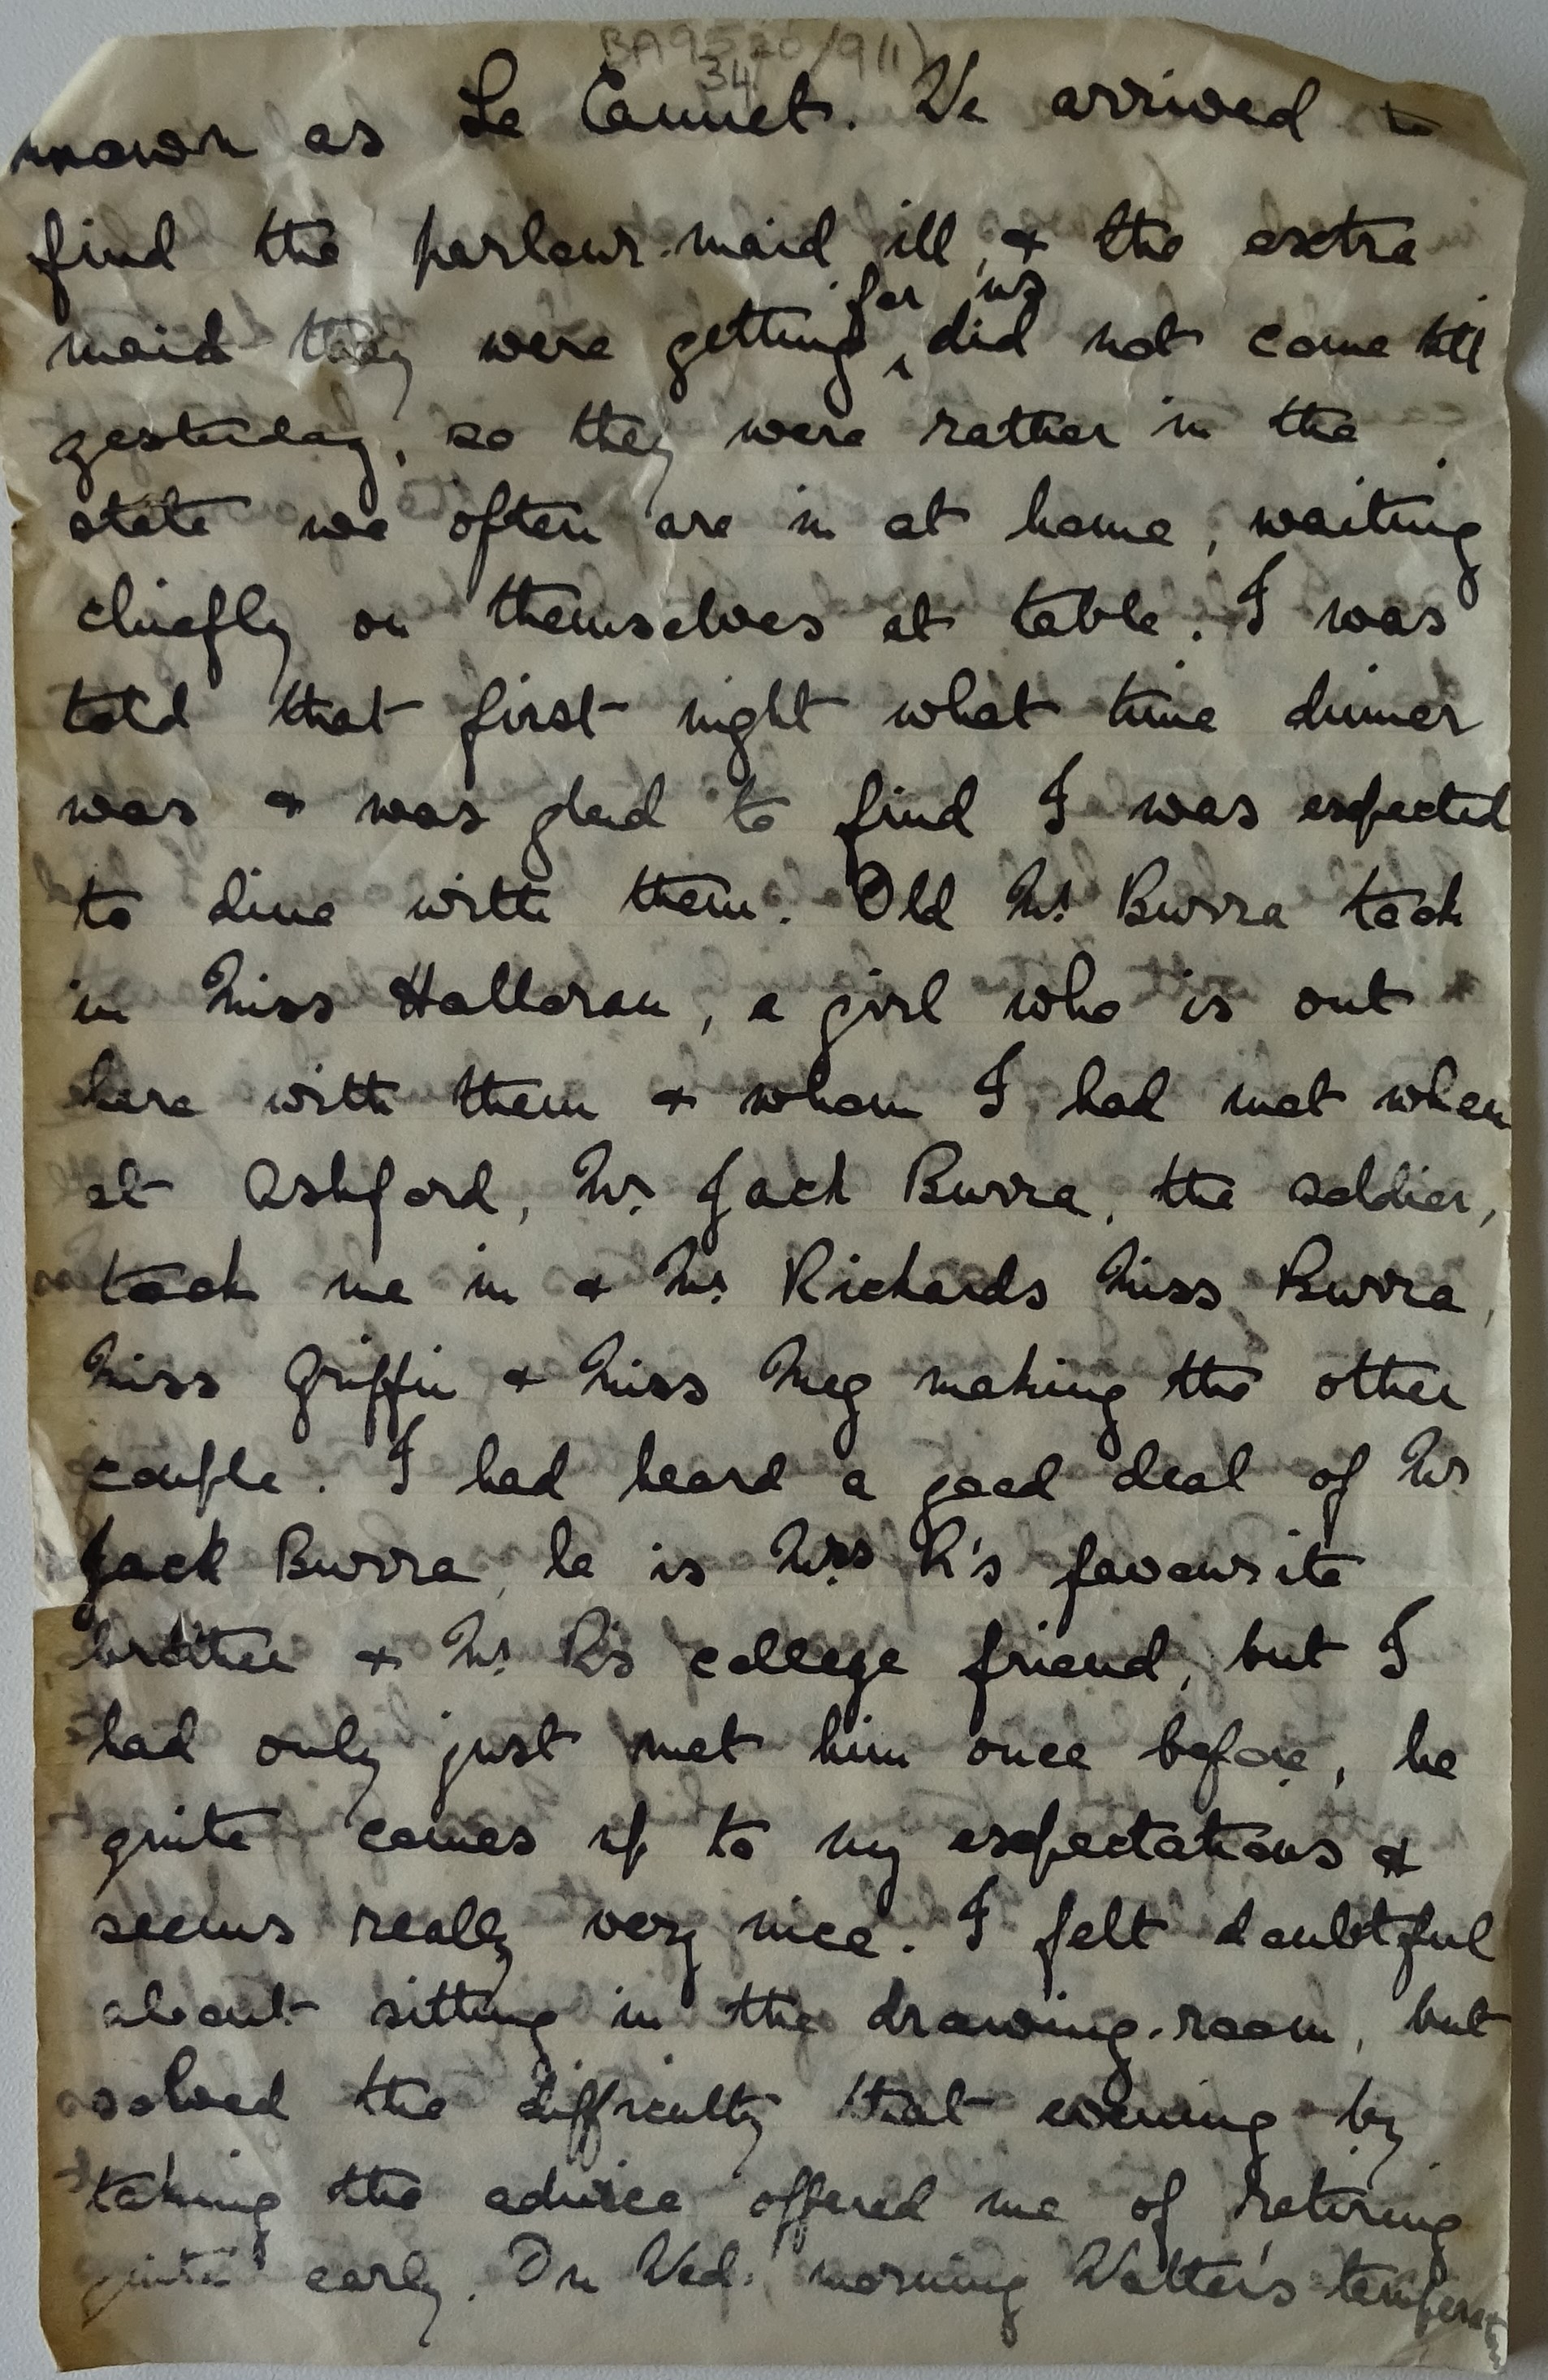 BA9520/9(1)
34
known as Le Cannet. We arrived to
find the parlour-maid ill, & the extra
for us
maid they were getting ^ did not come till
yesterday, so they were rather in the
state we often are in at home, waiting
chiefly on themselves at table. I was
told that first night what time dinner
was & was glad to find I was expected
to dine with them. Old Mr Burra took
in Miss Halloran, a girl who is out
here with them & whom I had met when
at Ashford, Mr Jack Burra, the soldier,
took me in & Mr Richards Miss Burra,
Miss Griffin & Miss Meg making the other
couple. I had heard a good deal of Mr
Jack Burra, he is Mrs R's favourite
brother & Mr R's college friend, but I
had only just met him once before, he
quite comes up to my expectations &
seems really very nice. I felt doubtful
about sitting in the drawing-room, but
solved the difficulty that evening by
taking the advice offered me of retiring
quite early. On Wed. morning Walter's temperature